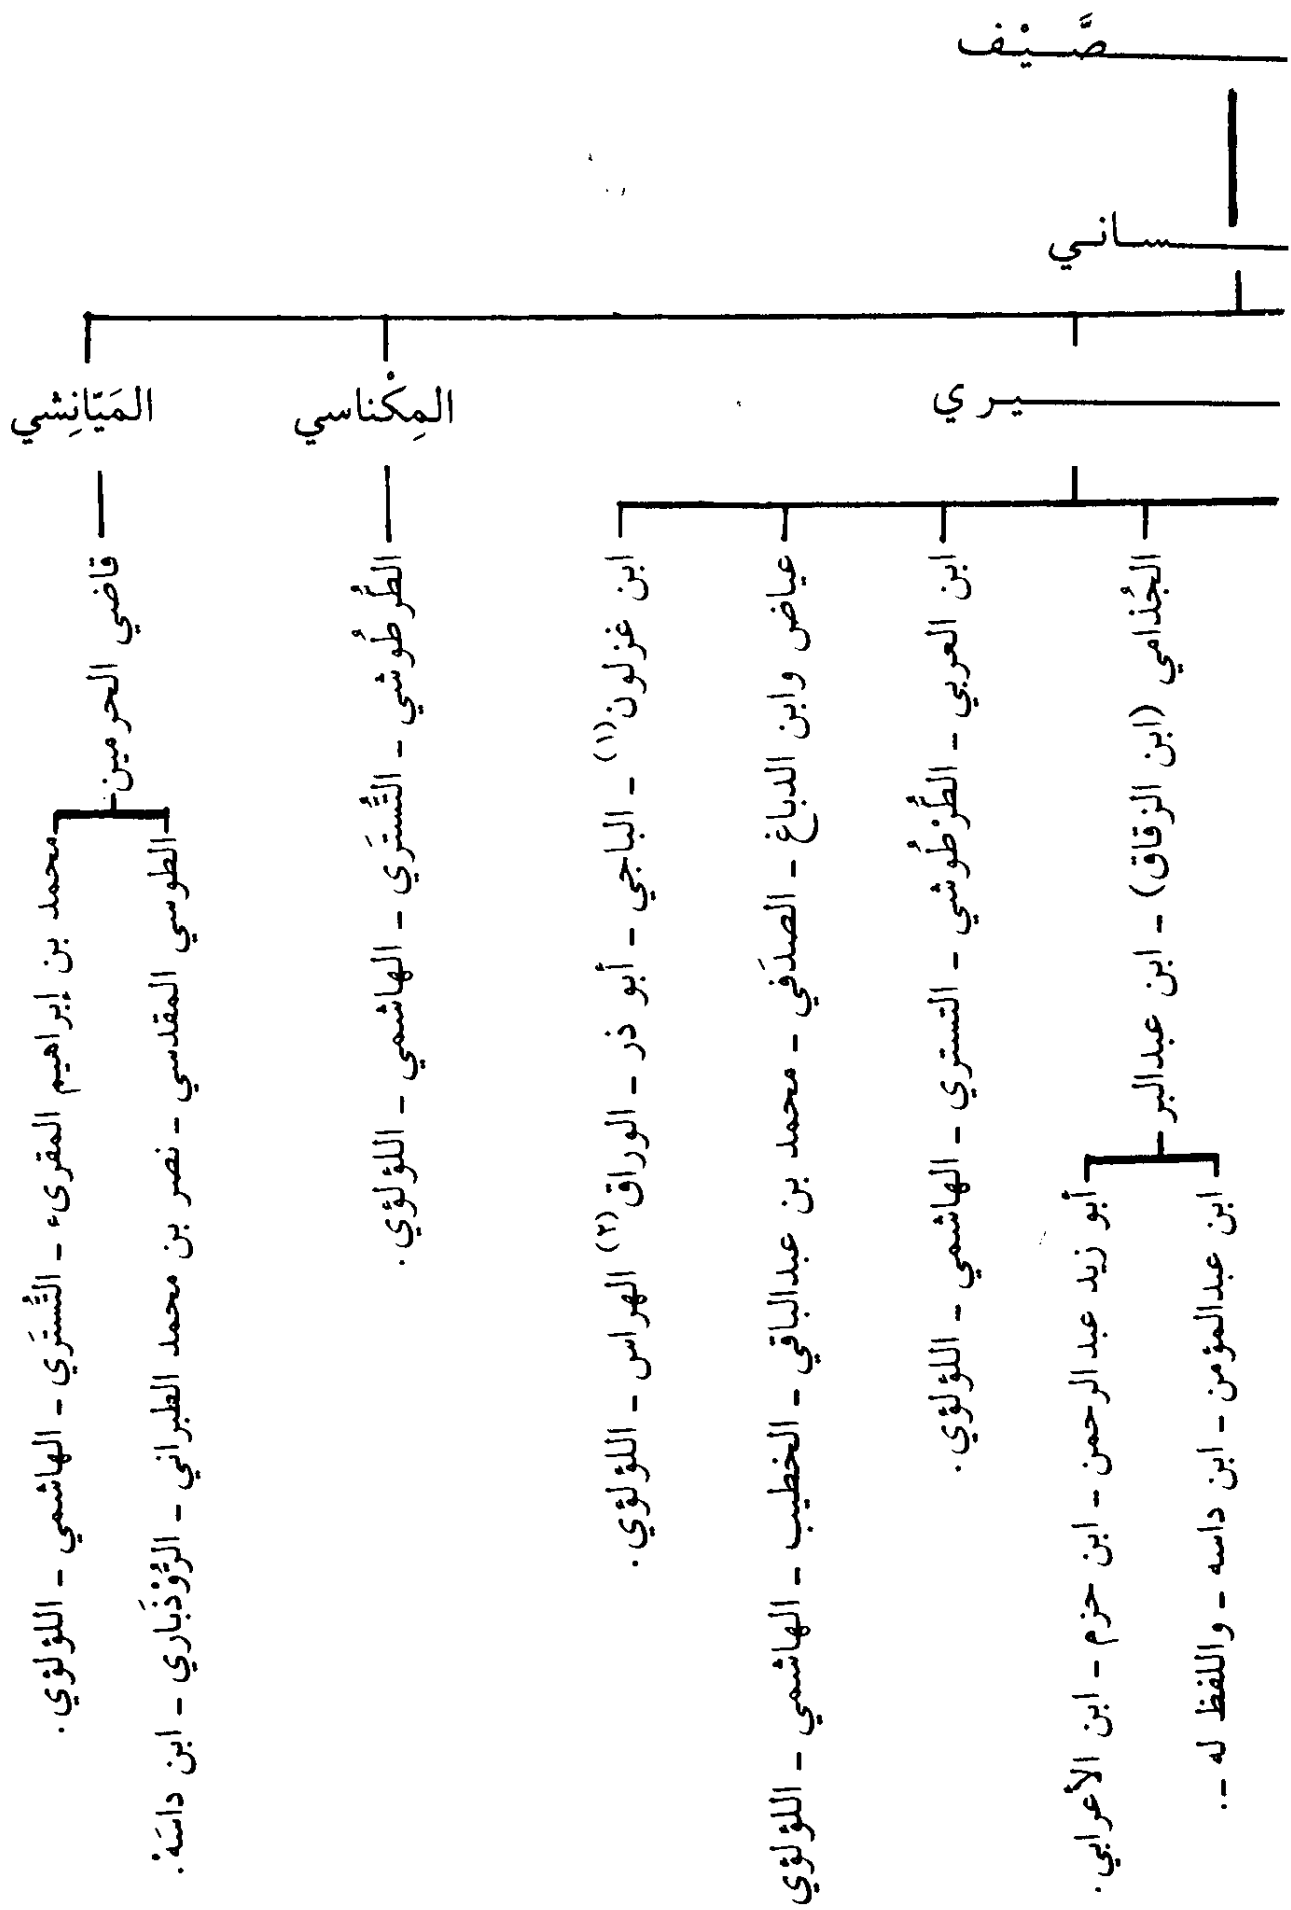 صَّيْف
ساني
يري
المِكْناسي
المَيّانِشي
الجُذامي (ابن الزقاق) - ابن عبدالبر
ابن عبدالمؤمن - ابن داسه - واللفظ له -.
أبو زيد عبدالرحمن - ابن حزم - ابن الأعرابي.
ابن العربي - الطُّرْطُوشي - التستري - الهاشمي - اللؤلؤي.
عياض وابن الدباغ - الصدَفي - محمد بن عبدالباقي - الخطيب - الهاشمي - اللؤلؤي
ابن غزلون(١) - الباجي - أبو ذر - الوراق(٢) الهراس - اللؤلؤي.
الطُّرطُوشي - التُّستَري - الهاشمي - اللؤلؤي.
قاضي الحرمين
الطوسي المقدسي - نصر بن محمد الطبراني - الرُّوْذَباري - ابن داسَهْ.
محمد بن إبراهيم المقرىء - التُّستَري - الهاشمي - اللؤلؤي.